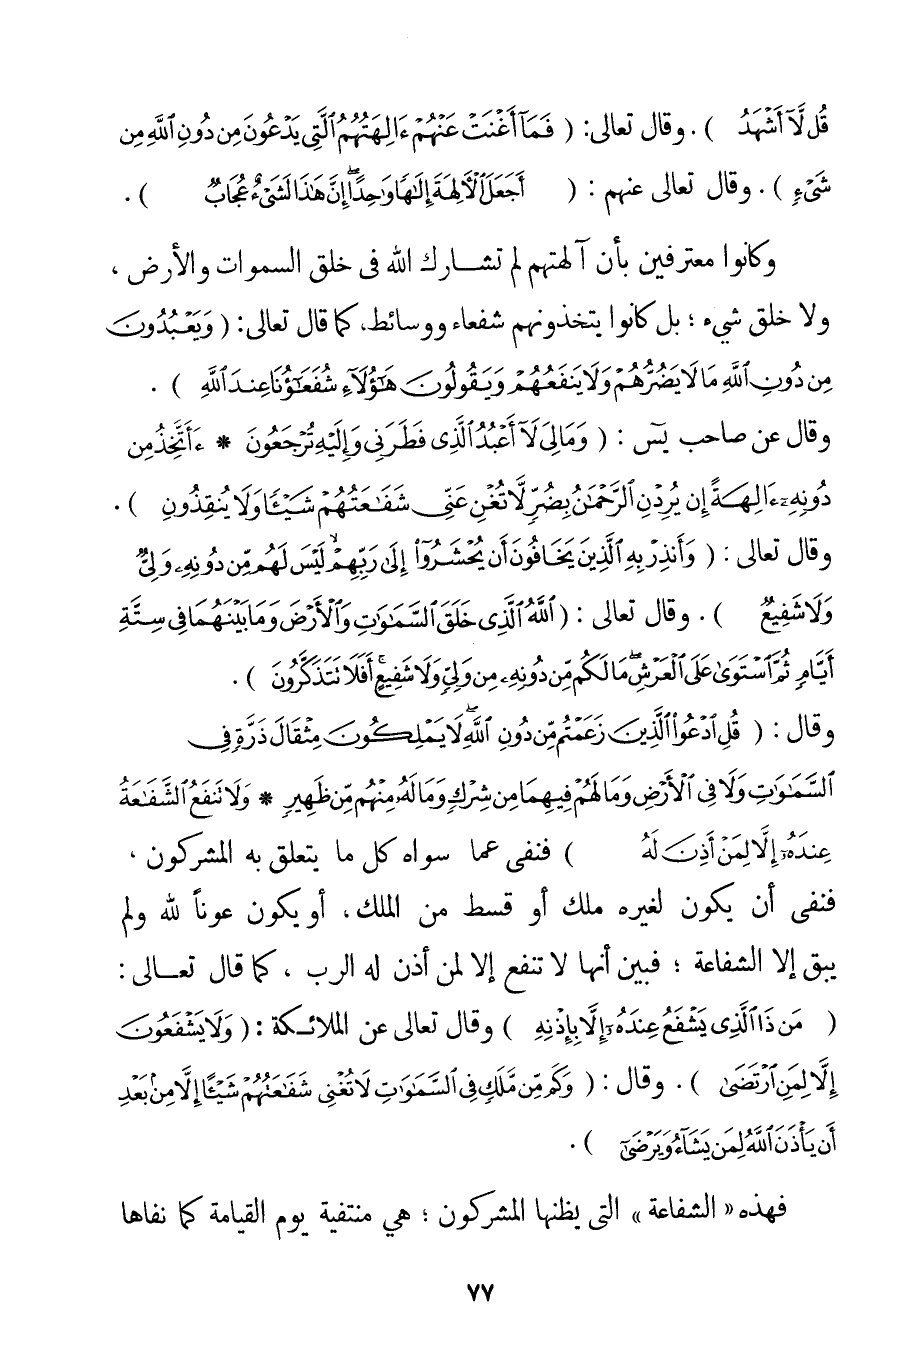 قُل لَّآ أَشْهَدُ ) . وقال تعالى: ( فَمَآ أَغْنَتْ عَنْهُمْ ءَالِهَتُهُمُ ٱلَّتِى يَدْعُونَ مِن دُونِ ٱللَّهِ مِن
شَىْءٍ ) . وقال تعالى عنهم : ( أَجَعَلَ ٱلْأٓلِهَةَ إِلَٰهًا وَٰحِدًا ۖ إِنَّ هَٰذَا لَشَىْءٌ عُجَابٌ ) .
وكانوا معترفين بأن آلهتهم لم تشارك الله فى خلق السموات والأرض ،
ولا خلق شيء ؛ بل كانوا يتخذونهم شفعاء ووسائط، كما قال تعالى: ( وَيَعْبُدُونَ
مِن دُونِ ٱللَّهِ مَا لَا يَضُرُّهُمْ وَلَا يَنفَعُهُمْ وَيَقُولُونَ هَٰٓؤُلَآءِ شُفَعَٰٓؤُنَا عِندَ ٱللَّهِ ) .
وقال عن صاحب يسٓ : ( وَمَا لِىَ لَآ أَعْبُدُ ٱلَّذِى فَطَرَنِى وَإِلَيْهِ تُرْجَعُونَ * ءَأَتَّخِذُ مِن
دُونِهِۦٓ ءَالِهَةً إِن يُرِدْنِ ٱلرَّحْمَٰنُ بِضُرٍّ لَّا تُغْنِ عَنِّى شَفَٰعَتُهُمْ شَيْـًٔا وَلَا يُنقِذُونِ ) .
وقال تعالى : ( وَأَنذِرْ بِهِ ٱلَّذِينَ يَخَافُونَ أَن يُحْشَرُوٓا۟ إِلَىٰ رَبِّهِمْ ۙ لَيْسَ لَهُم مِّن دُونِهِۦ وَلِىٌّ
وَلَا شَفِيعٌ ) . وقال تعالى : ( ٱللَّهُ ٱلَّذِى خَلَقَ ٱلسَّمَٰوَٰتِ وَٱلْأَرْضَ وَمَا بَيْنَهُمَا فِى سِتَّةِ
أَيَّامٍ ثُمَّ ٱسْتَوَىٰ عَلَى ٱلْعَرْشِ ۖ مَا لَكُم مِّن دُونِهِۦ مِن وَلِىٍّ وَلَا شَفِيعٍ ۚ أَفَلَا تَتَذَكَّرُونَ ) .
وقال : ( قُلِ ٱدْعُوا۟ ٱلَّذِينَ زَعَمْتُم مِّن دُونِ ٱللَّهِ ۖ لَا يَمْلِكُونَ مِثْقَالَ ذَرَّةٍ فِى
ٱلسَّمَٰوَٰتِ وَلَا فِى ٱلْأَرْضِ وَمَا لَهُمْ فِيهِمَا مِن شِرْكٍ وَمَا لَهُۥ مِنْهُم مِّن ظَهِيرٍ * وَلَا تَنفَعُ ٱلشَّفَٰعَةُ
عِندَهُۥٓ إِلَّا لِمَنْ أَذِنَ لَهُ ) فنفى عما سواه كل ما يتعلق به المشركون ،
فنفى أن يكون لغيره ملك أو قسط من الملك، أو يكون عوناً لله ولم
يبق إلا الشفاعة ؛ فبين أنها لا تنفع إلا لمن أذن له الرب ، كما قال تعالى :
( مَن ذَا ٱلَّذِى يَشْفَعُ عِندَهُۥٓ إِلَّا بِإِذْنِهِ ) وقال تعالى عن الملائكة : ( وَلَا يَشْفَعُونَ
إِلَّا لِمَنِ ٱرْتَضَىٰ ) . وقال : ( وَكَم مِّن مَّلَكٍ فِى ٱلسَّمَٰوَٰتِ لَا تُغْنِى شَفَٰعَتُهُمْ شَيْـًٔا إِلَّا مِنۢ بَعْدِ
أَن يَأْذَنَ ٱللَّهُ لِمَن يَشَآءُ وَيَرْضَىٰٓ ) .
فهذه « الشفاعة » التى يظنها المشركون ؛ هي منتفية يوم القيامة كما نفاها
٧٧